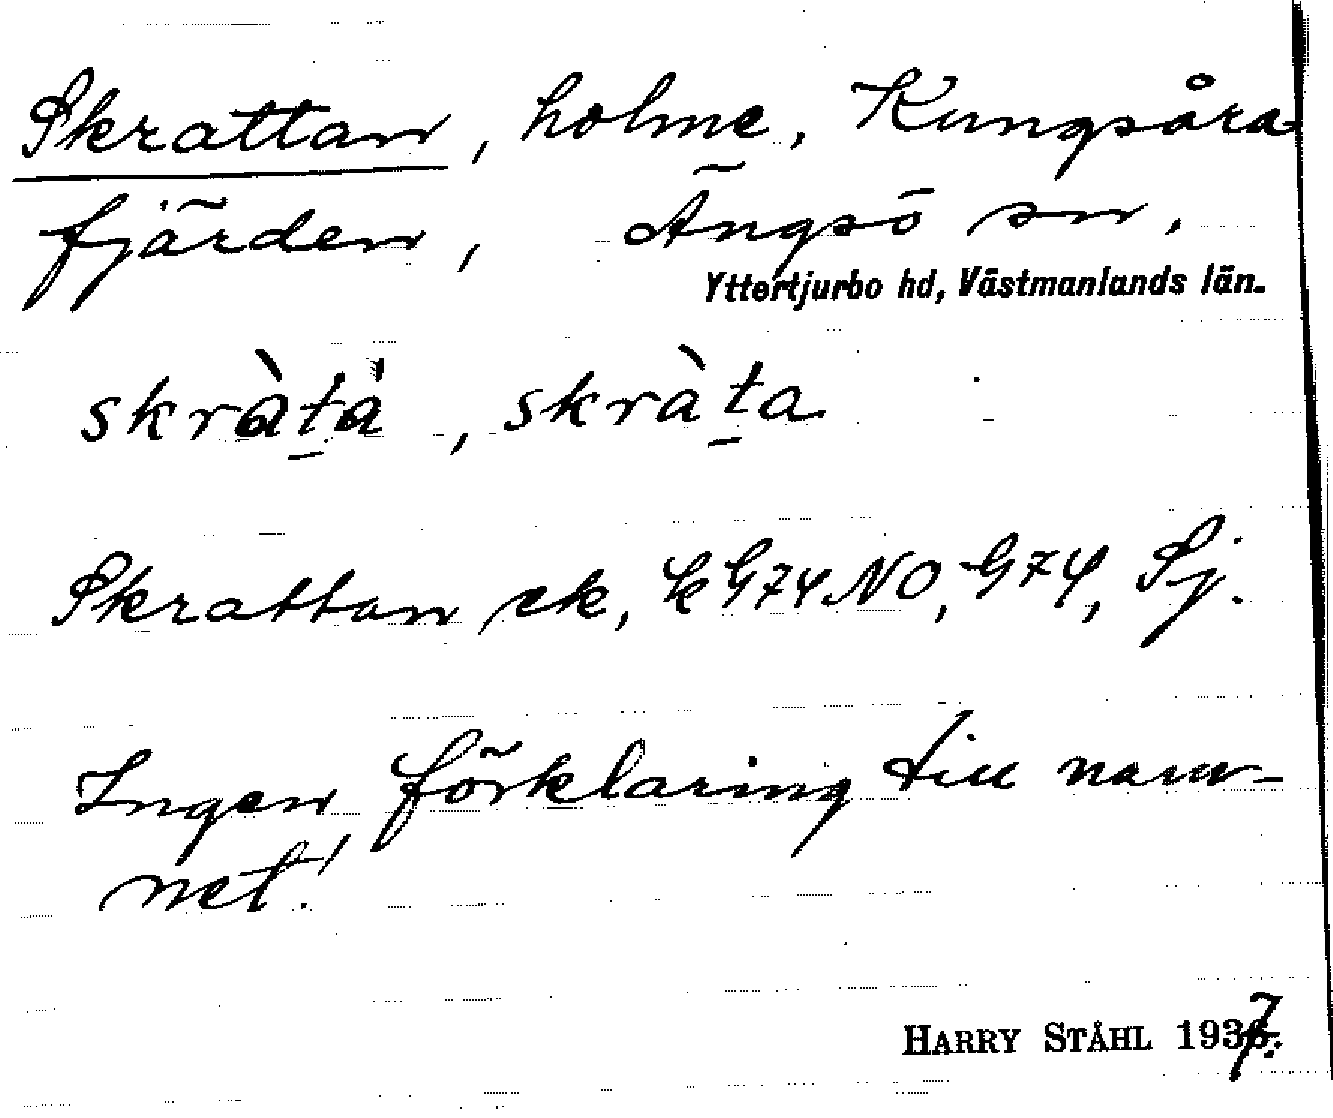 Skrattan, holme, Kungsåra-
fjärden, Ängsö sn.
Yttertjurbo hd, Västmanlands län.
skràt̠à, skràt̠a
Skrattan ek, k G74 NO, G74, Sj.
Ingen förklaring till nam-
net!
HARRY STÅHL 1937.